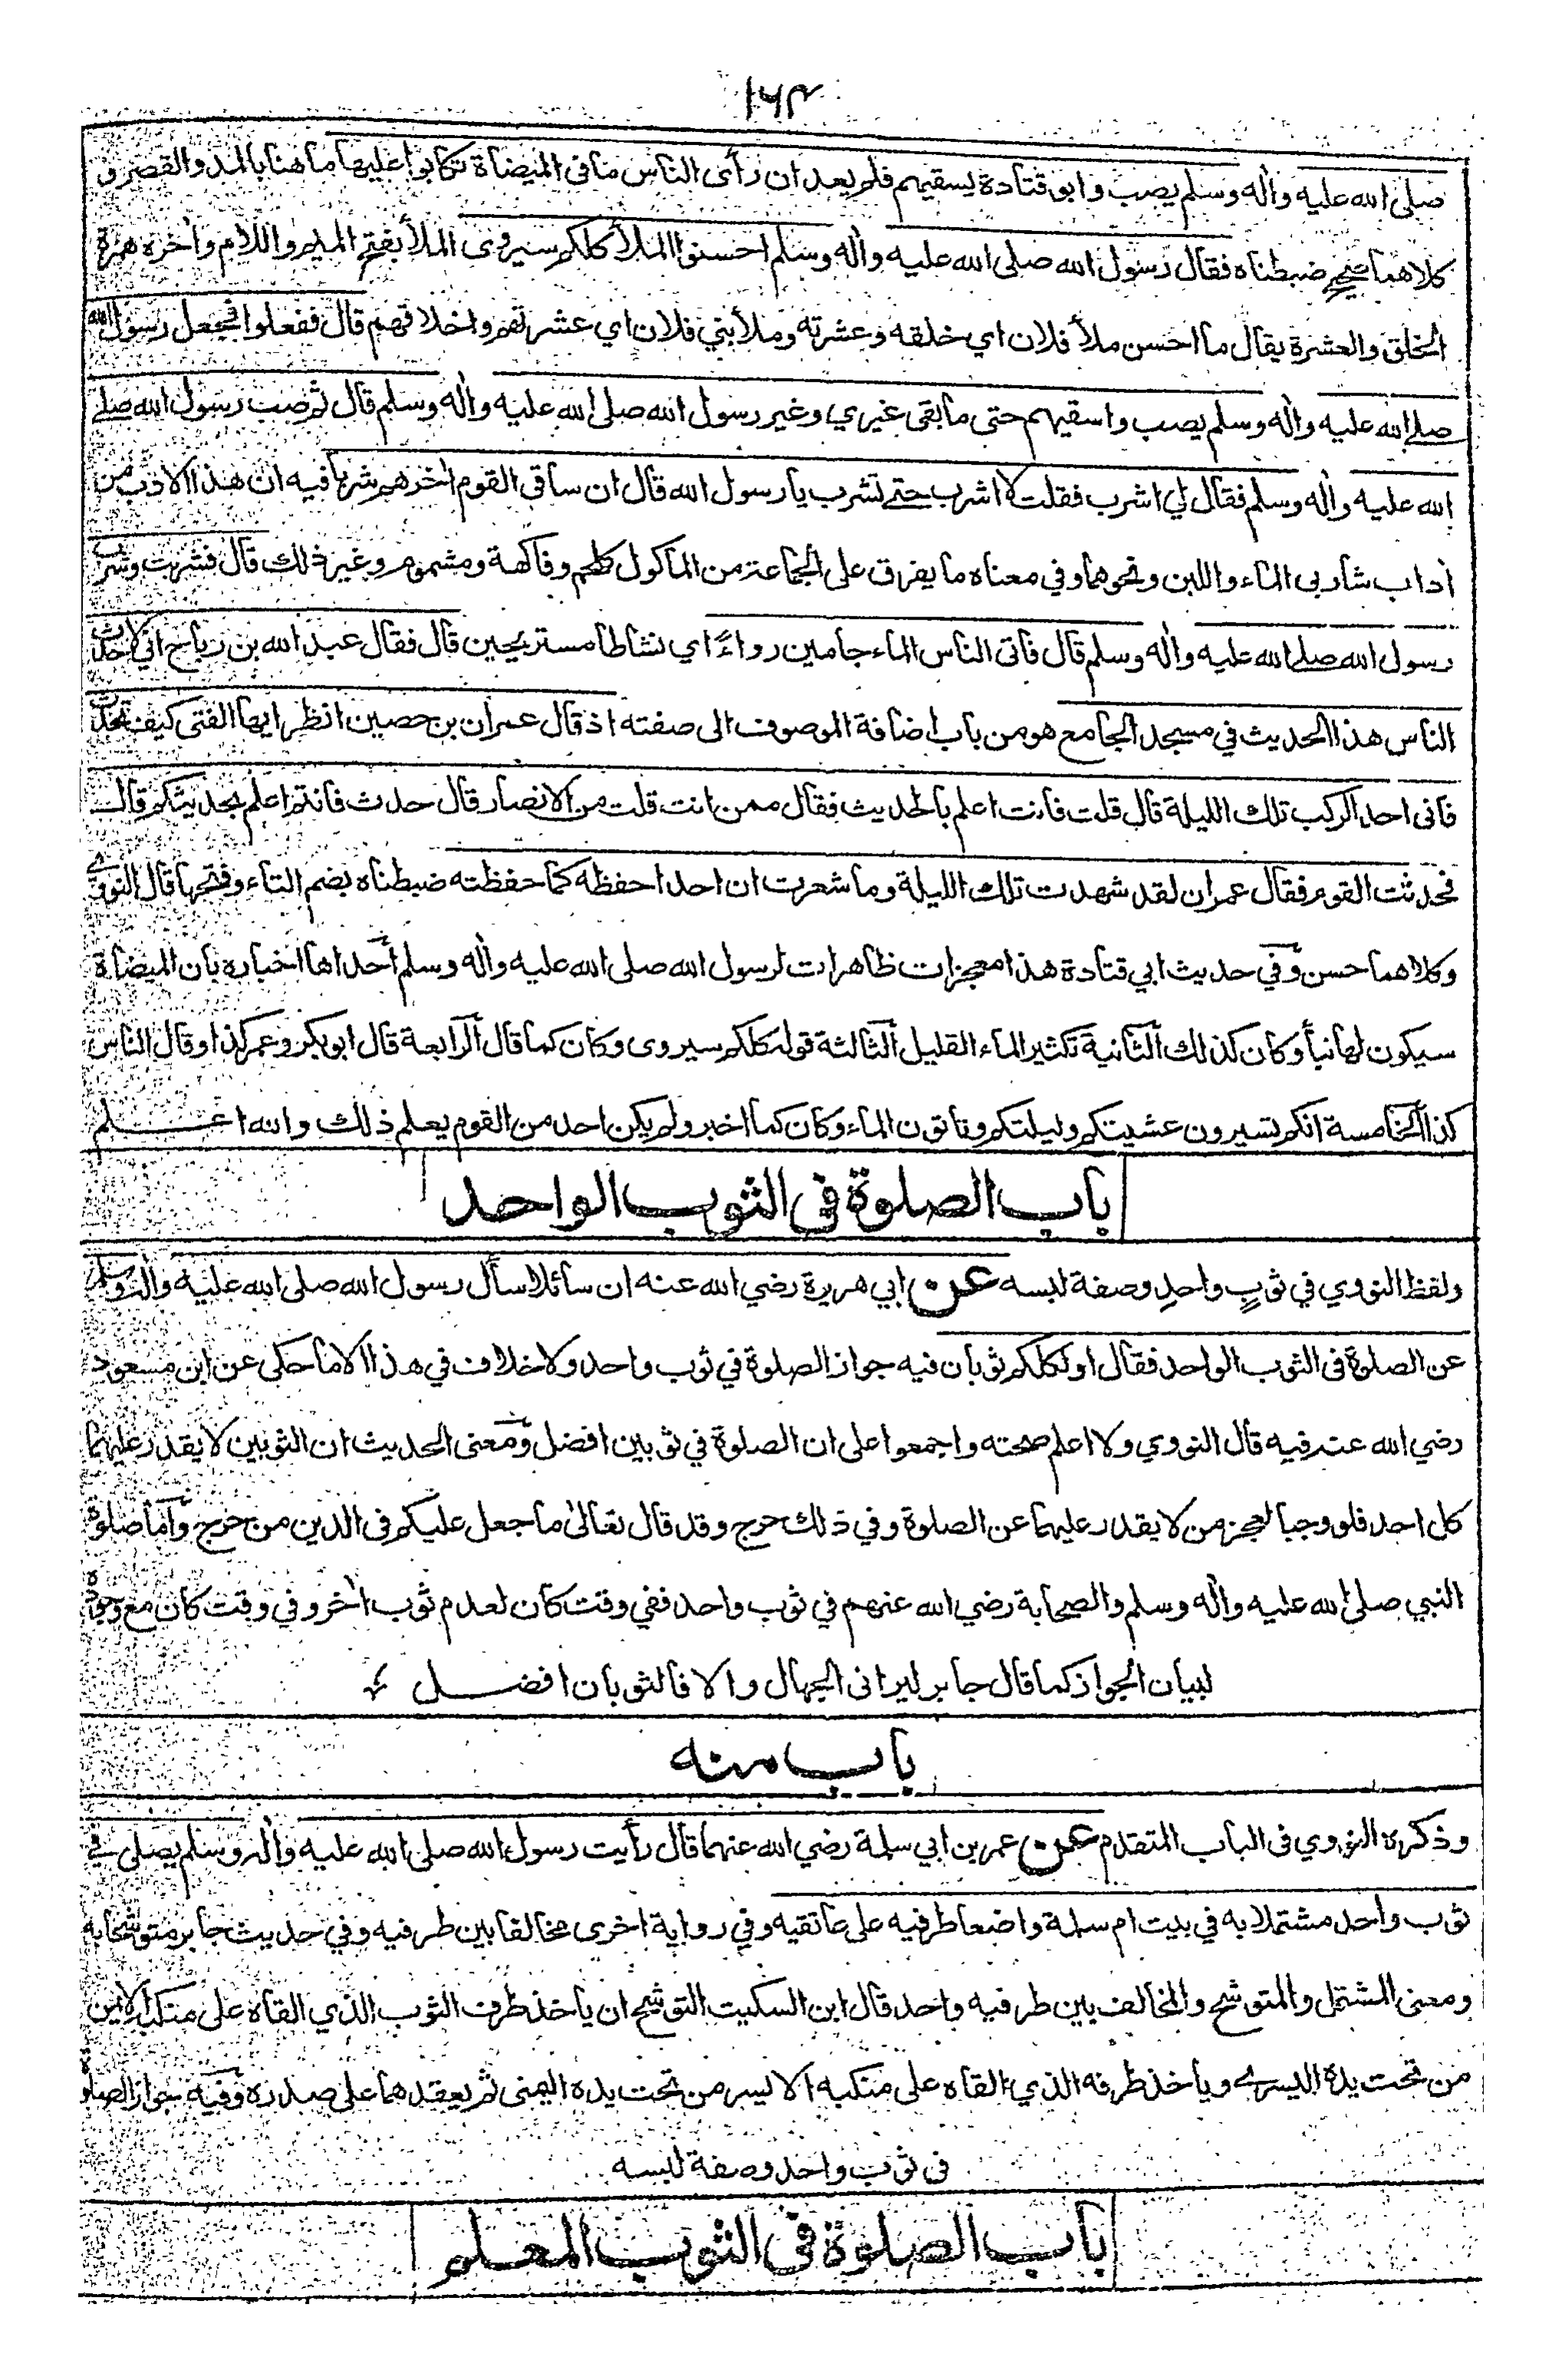 ١٦٣
صلى الله عليه واٰله وسلم يصب وابو قتادة يسقيهم فلم يعد ان رأى الناس مافى الميضاة تكابوا عليها ما هنا بالمد والقصر و
كلاهما صحيح ضبطناه فقال رسول الله صلى الله عليه واٰله وسلم احسنوا الملأ كلكم سيروى الملأ بفتح الميم واللام واٰخره همزة
الخلق والعشرة يقال ما احسن ملأ فلان اي خلقه وعشرته وملأ بني فلان اي عشرتهم واخلاقهم قال ففعلوا فجعل رسول الله
صلى الله عليه واٰله وسلم يصب واسقيهم حتى ما بقى غيري وغير رسول الله صلى الله عليه واٰله وسلم قال ثم صب رسول الله صلى
الله عليه واٰله وسلم فقال لي اشرب فقلت لا اشرب حتى تشرب يا رسول الله قال ان ساقى القوم اٰخرهم شربا فيه ان هذا الادب من
اٰداب شاربى الماء واللبن ونحوهما وفي معناه ما يفرق على الجماعة من المأكول كلحم وفاكهة ومشموم وغير ذلك قال فشربت وشرب
رسول الله صلى الله عليه واٰله وسلم قال فأتى الناس الماء جامين رواءً اي نشاطا مستريحين قال فقال عبد الله بن رباح اني لاحدث
الناس هذا الحديث في مسجد الجامع هو من باب اضافة الموصوف الى صفته اذ قال عمران بن حصين انظر ايها الفتى كيف تحدث
فانى احد الركب تلك الليلة قال قلت فانت اعلم بالحديث فقال ممن انت قلت من الانصار قال حدث فانتم اعلم بحديثكم قال
فحدثت القوم فقال عمران لقد شهدت تلك الليلة وما شعرت ان احدا حفظه كما حفظته ضبطناه بضم التاء وفتحها قال النووي
وكلاهما حسن وفي حديث ابي قتادة هذا معجزات ظاهرات لرسول الله صلى الله عليه واٰله وسلم احداها اخباره بان الميضاة
سيكون لها نبأ وكان كذلك الثانية تكثير الماء القليل الثالثة قوله كلكم سيروى وكان كما قال الرابعة قال ابو بكر وعمر كذا وقال الناس
كذا الخامسة انكم تسيرون عشيتكم وليلتكم وتأتون الماء وكان كما اخبر ولم يكن احد من القوم يعلم ذلك والله اعلم
باب الصلوة فى الثوب الواحد
ولفظ النووي في ثوبٍ واحدٍ وصفة لبسه عن ابي هريرة رضي الله عنه ان سائلا سأل رسول الله صلى الله عليه واٰله وسلم
عن الصلوة فى الثوب الواحد فقال اولكلكم ثوبان فيه جواز الصلوة في ثوب واحد ولا خلاف في هذا الا ما حكى عن ابن مسعود
رضي الله عنه فيه قال النووي ولا اعلم صحته واجمعوا على ان الصلوة في ثوبين افضل ومعنى الحديث ان الثوبين لا يقدر عليهما
كل احد فلو وجبا لعجز من لا يقدر عليهما عن الصلوة وفي ذلك حرج وقد قال تعالىٰ ما جعل عليكم فى الدين من حرج واما صلوة
النبي صلى الله عليه واٰله وسلم والصحابة رضي الله عنهم في ثوب واحد ففي وقت كان لعدم ثوب اٰخر وفي وقت كان مع وجوده
لبيان الجواز كما قال جابر ليرانى الجهال والا فالثوبان افضل
باب منه
وذكره النووي فى الباب المتقدم عن عمر بن ابي سلمة رضي الله عنهما قال رأيت رسول الله صلى الله عليه واٰله وسلم يصلى في
ثوب واحد مشتملا به في بيت ام سلمة واضعا طرفيه على عاتقيه وفي رواية اخرى مخالفا بين طرفيه وفي حديث جابر متوشحا به
ومعنى المشتمل والمتوشح والمخالف بين طرفيه واحد قال ابن السكيت التوشح ان ياخذ طرف الثوب الذي القاه على منكبه الايمن
من تحت يده اليسرى وياخذ طرفه الذي القاه على منكبه الايسر من تحت يده اليمنى ثم يعقدهما على صدره وفيه جواز الصلوة
فى ثوب واحد وصفة لبسه
باب الصلوة فى الثوب المعلم